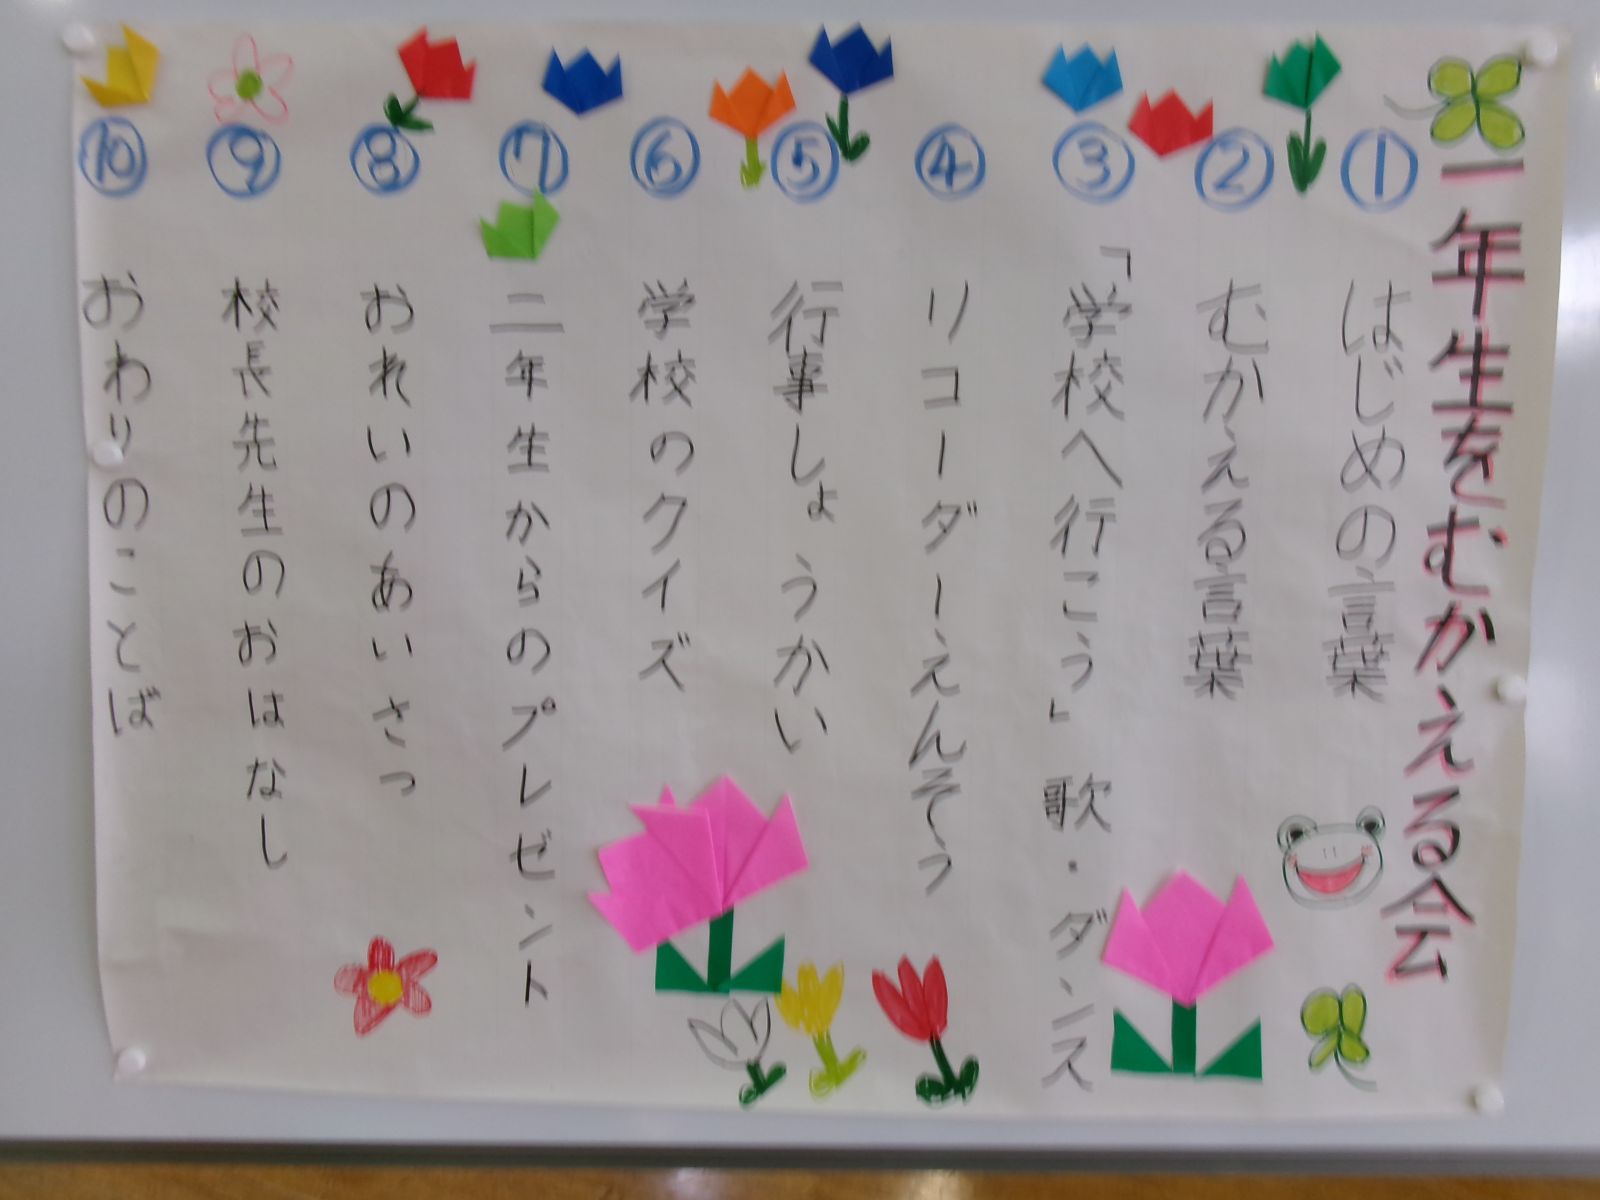 一年生をむかえる会
① はじめの言葉
② むかえる言葉
③ 「学校へ行こう」歌・ダンス
④ リコーダーえんそう
⑤ 行事しょうかい
⑥ 学校のクイズ
⑦ 二年生からのプレゼント
⑧ おれいのあいさつ
⑨ 校長先生のおはなし
⑩ おわりのことば